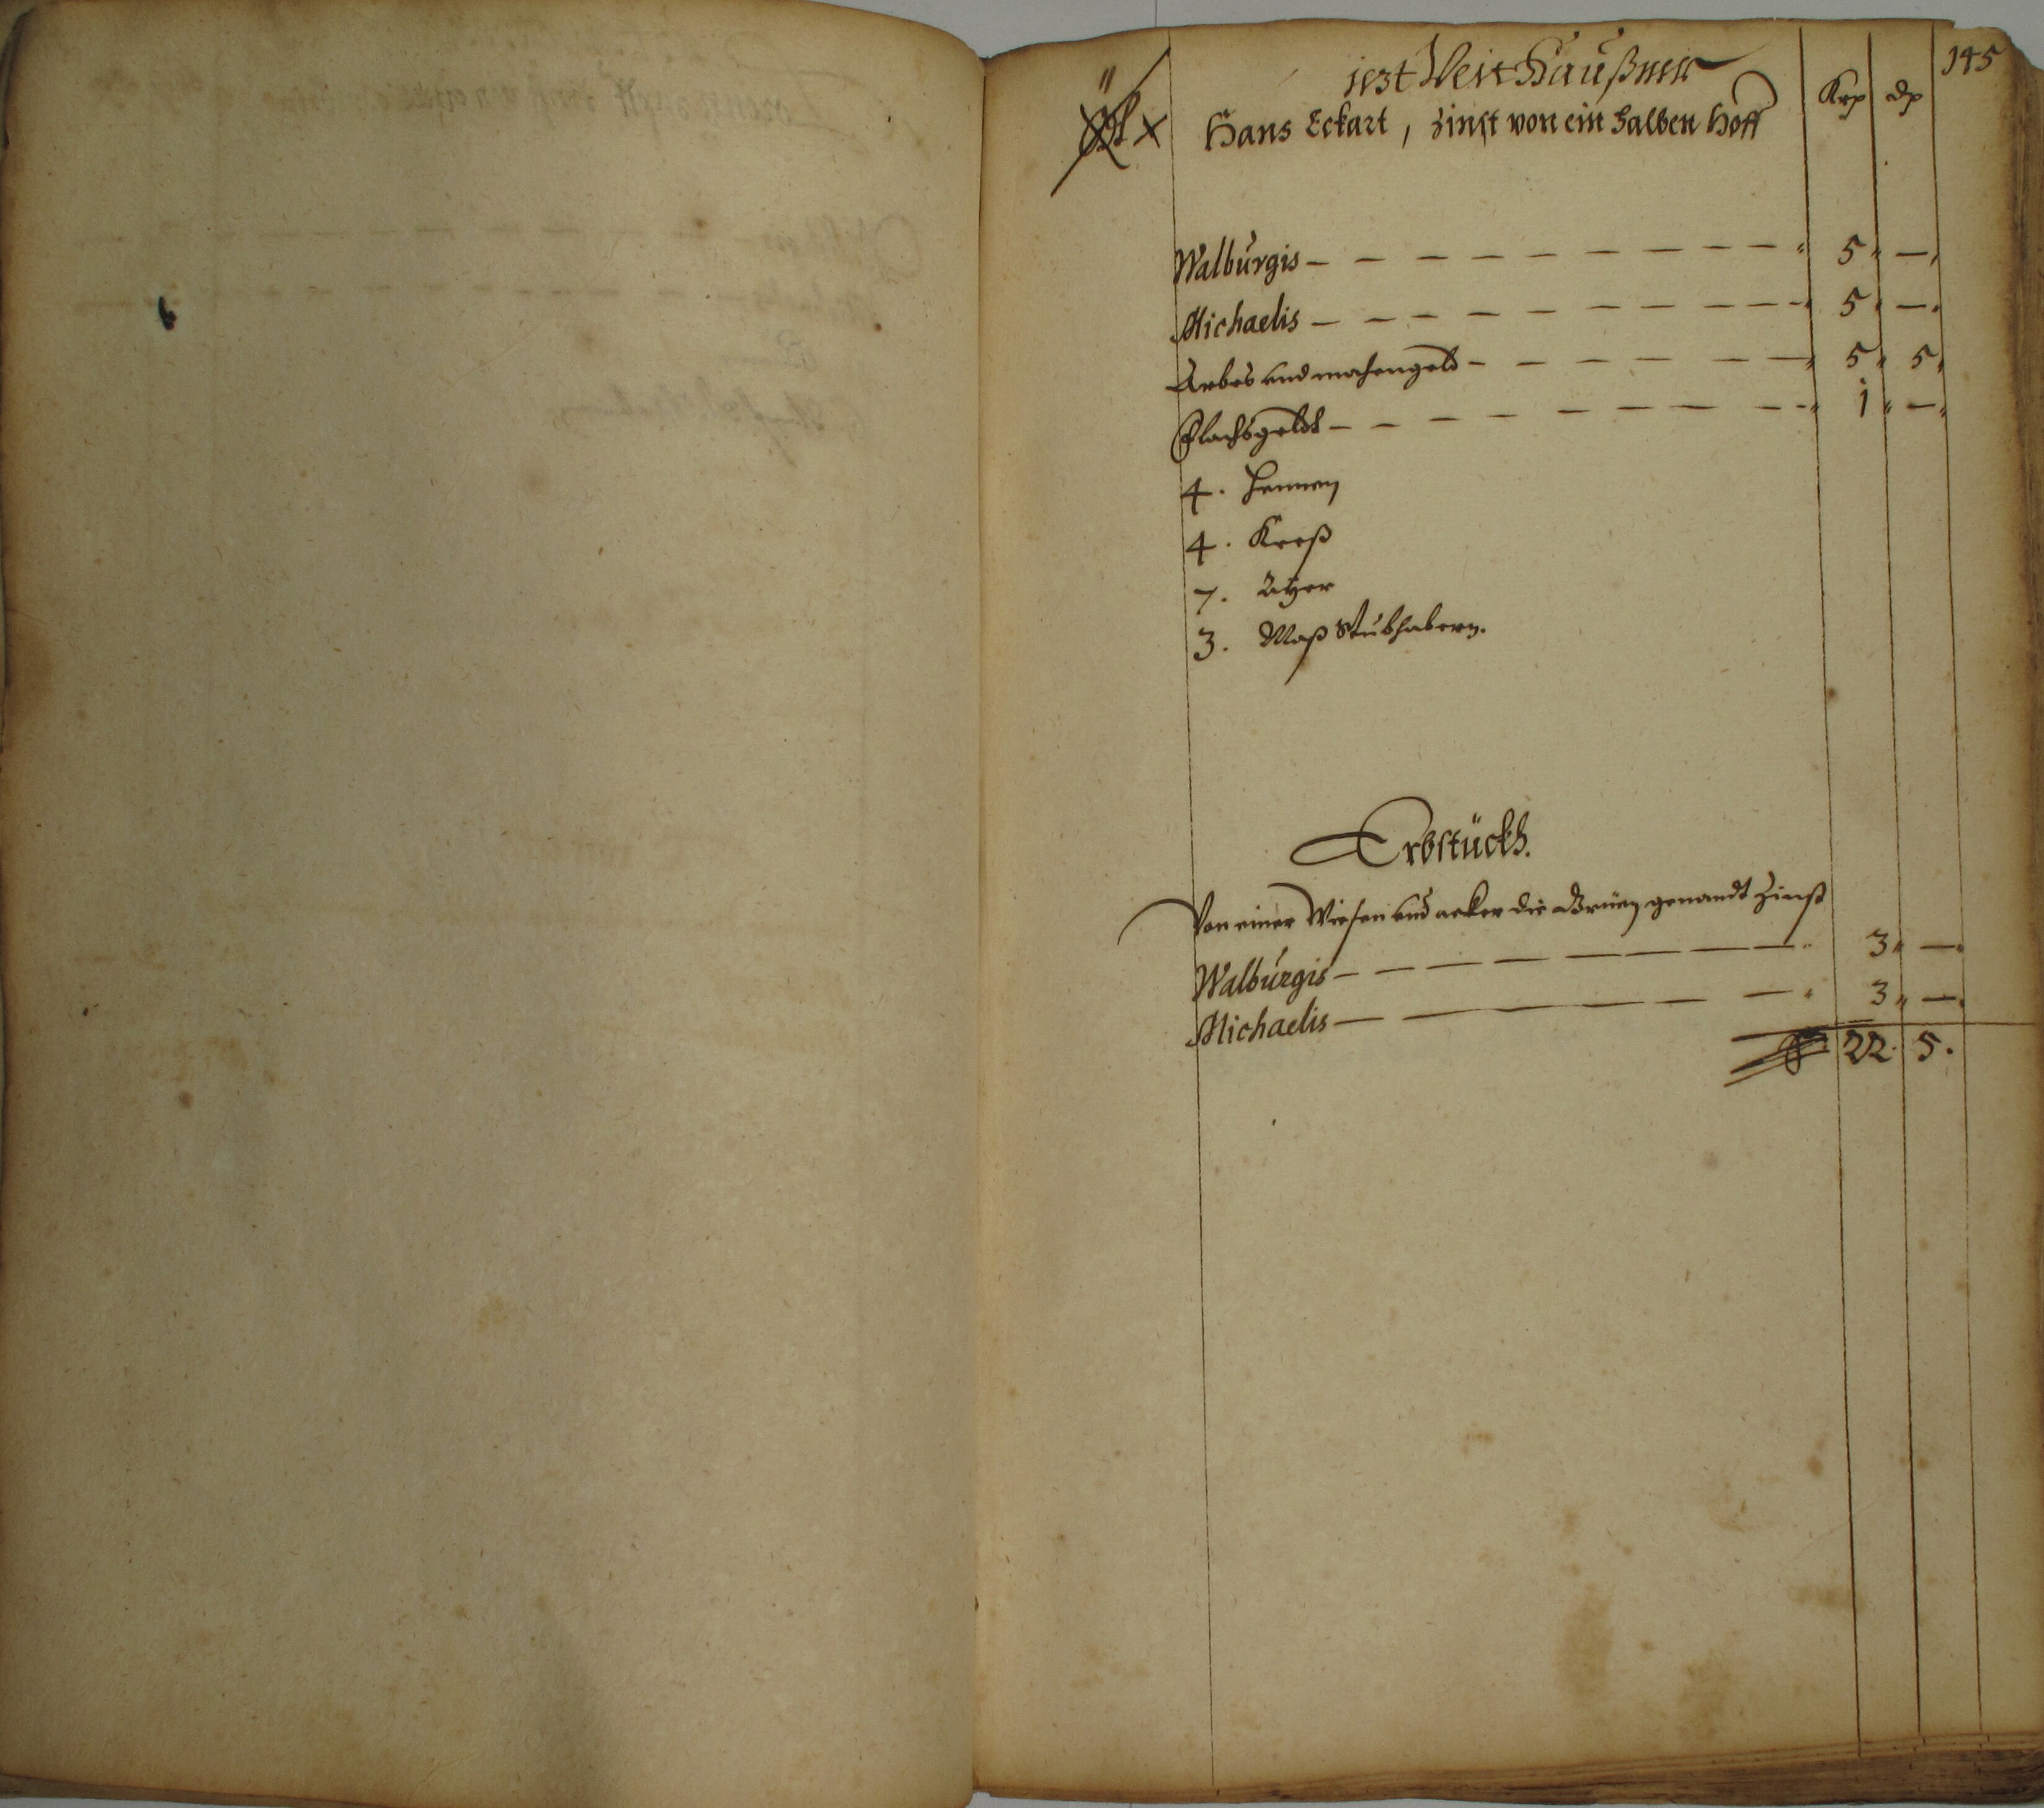 145
iezt Veit Haußner
Hans Eckart, Zinst von ein halben Hoff
Walburgis — — — — — — — — — 5 " —
Michaelis — — — — — — — — — 5 " —
Arbes und mahengeld — — — — — — 5 " 5
Flachsgeldt — — — — — — — — 1 " —
4. Hennen
4. Keeß
7. Ayer
3. Maß Stubhabern.
Erbstückh.
Von einer Wiesen und acker die genandt Zinst
Walburgis — — — — — — — — 3 " —
Michaelis — — — — — — — 3 " —
22. 5.